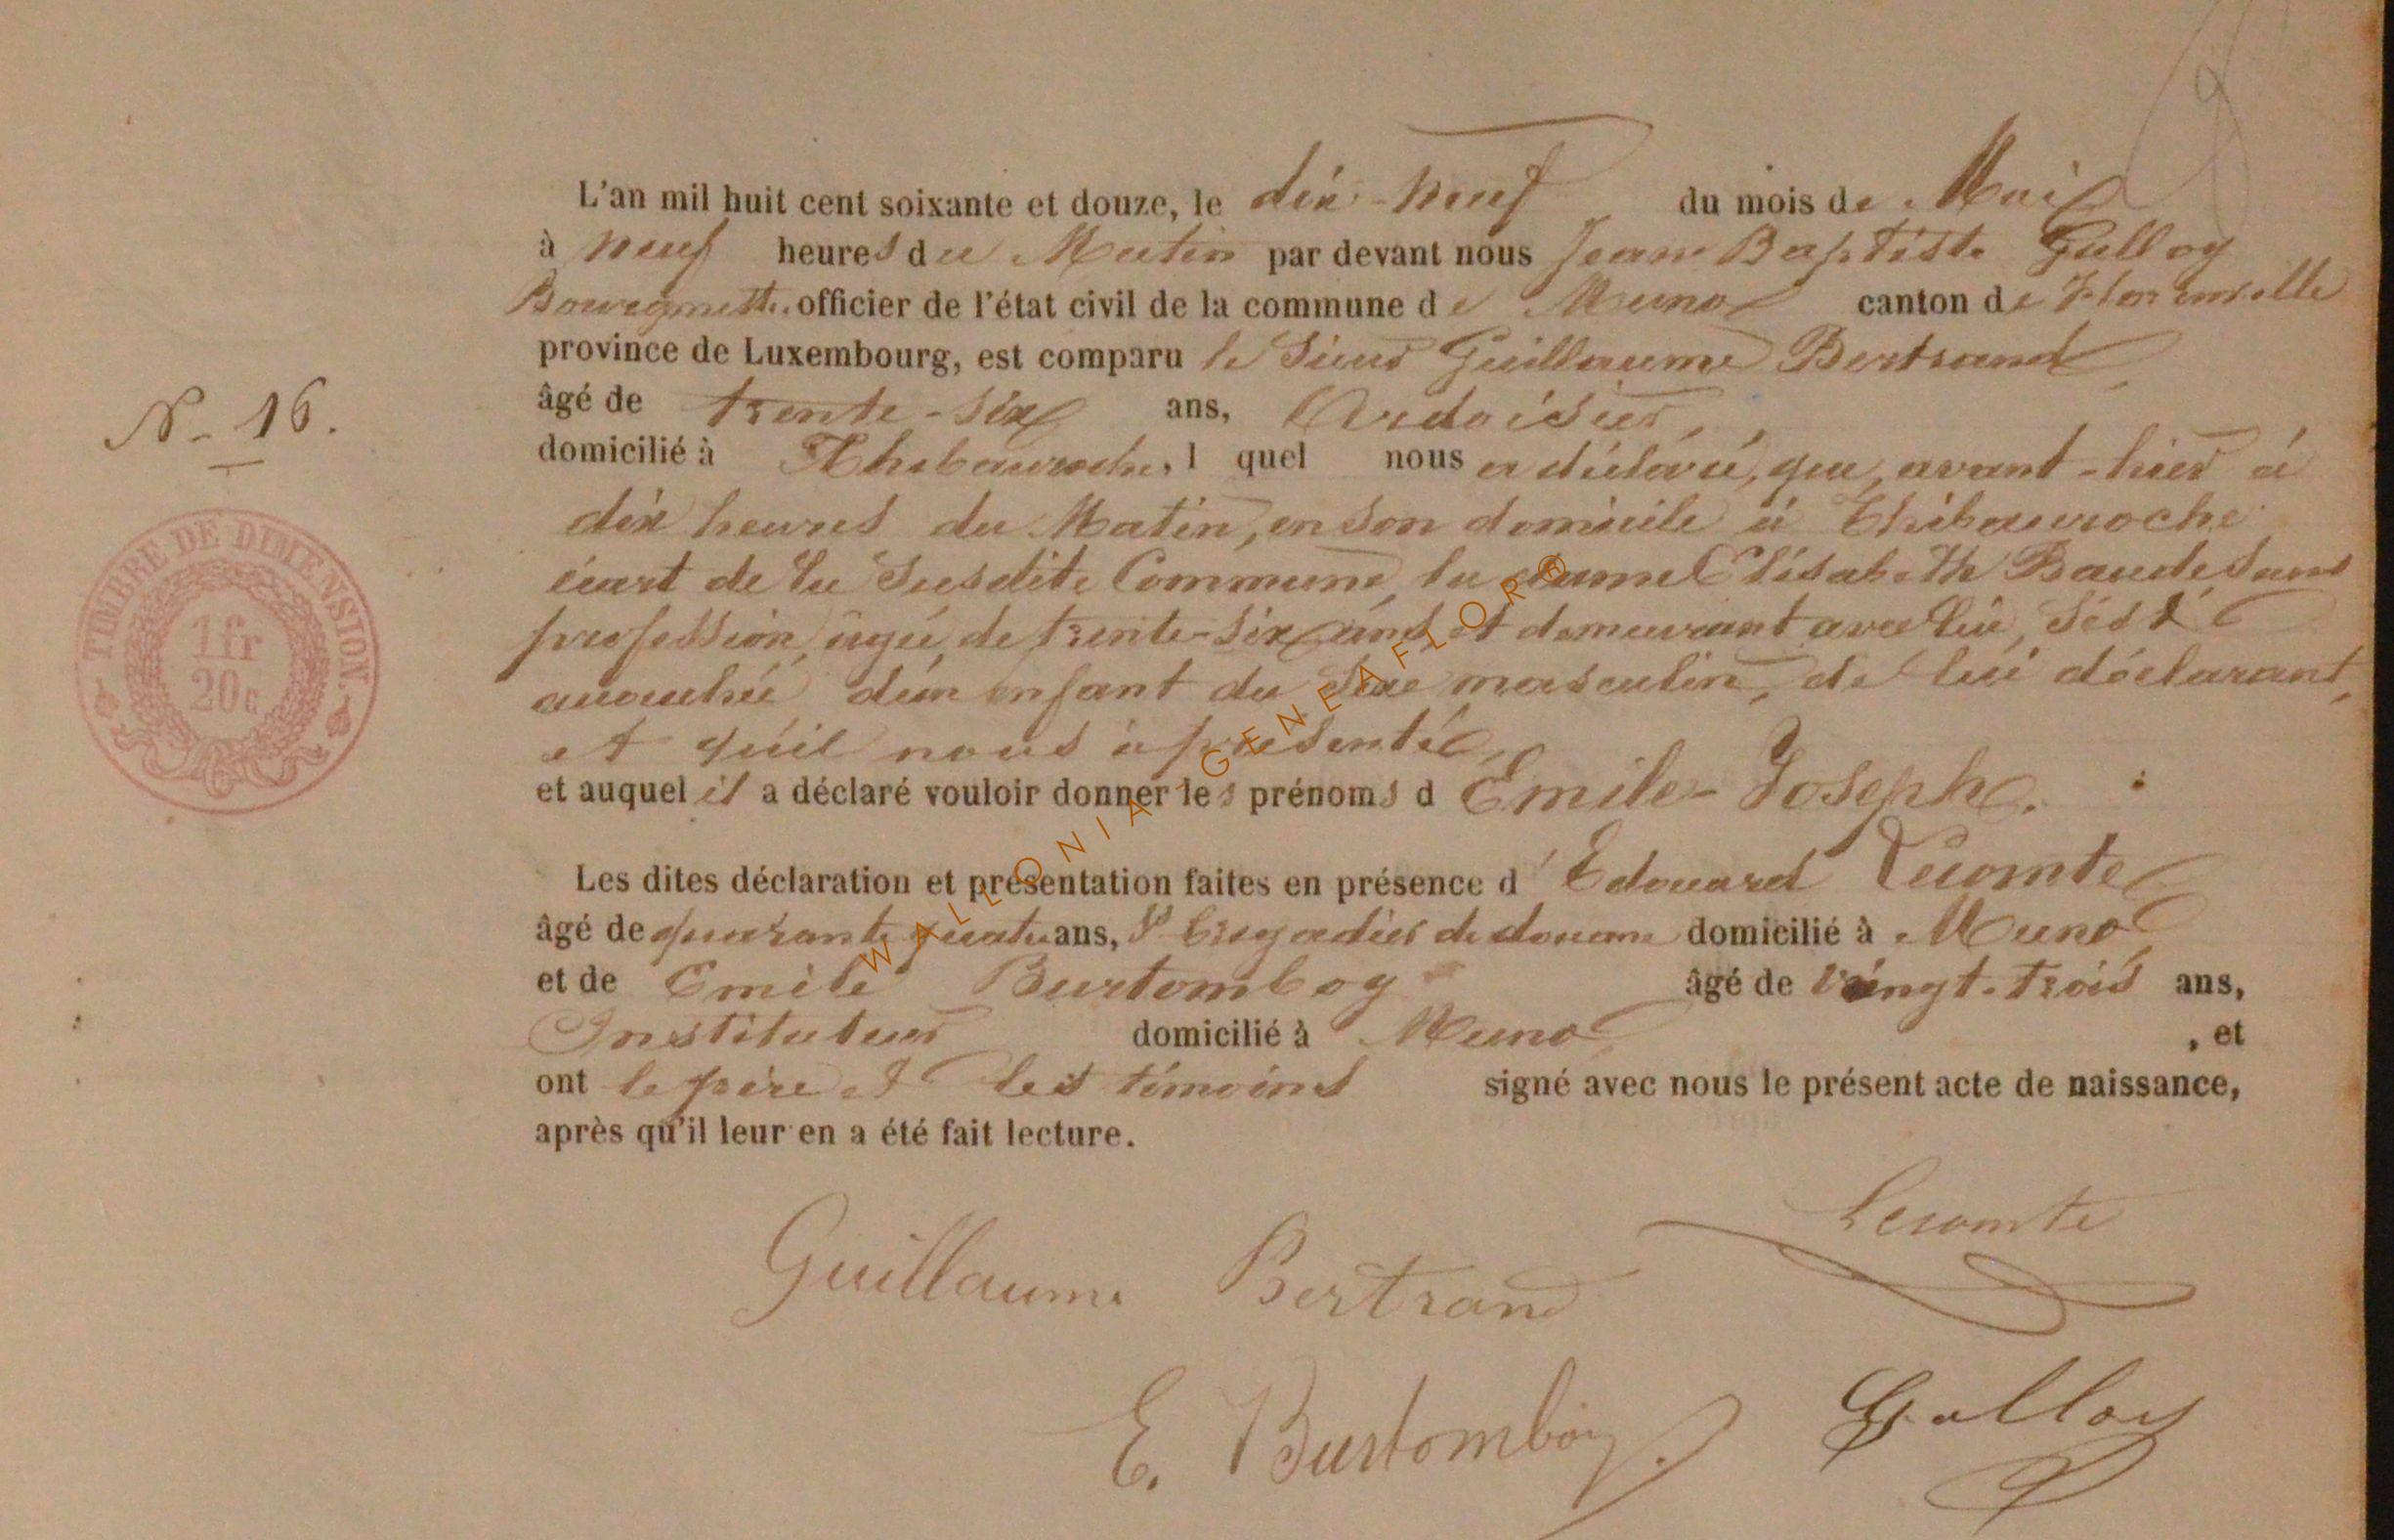 L'an mil huit cent soixante et douze, le dix-neuf du mois de Mai
à neuf heures du Matin par devant nous Jean Baptiste Gulloy
Bourgmestre officier de l'état civil de la commune de Muno canton de Florenville
province de Luxembourg, est comparu le Sieur Guillaume Bertrand
âgé de trente-six ans, Ardoisier,
domicilié à Thibauroche, l quel nous a déclaré, que, avant-hier à
N° 16.
dix heures du Matin, en son domicile à Thibauroche
écart de la susdite Commune, la dame Elisabeth Baude sans
profession, âgée de trente-six ans, et demeurant avec lui, s'est
accouchée d'un enfant du sexe masculin, de lui déclarant,
et qu'il nous a présenté,
et auquel il a déclaré vouloir donner les prénoms d Emile-Joseph.
TIMBRE DE DIMENSION.
1 fr
20 c
Les dites déclaration et présentation faites en présence d' Edouard Lecomte
âgé de quarante quatre ans, brigadier de douane domicilié à Muno
et de Emile Burtomboy âgé de vingt-trois ans,
Instituteur domicilié à Muno , et
ont le père et les témoins signé avec nous le présent acte de naissance,
après qu'il leur en a été fait lecture.
Lecomte
Guillaume Bertrand
E. Burtomboy. Gulloy
WALLONIA - GENEAFLOR®